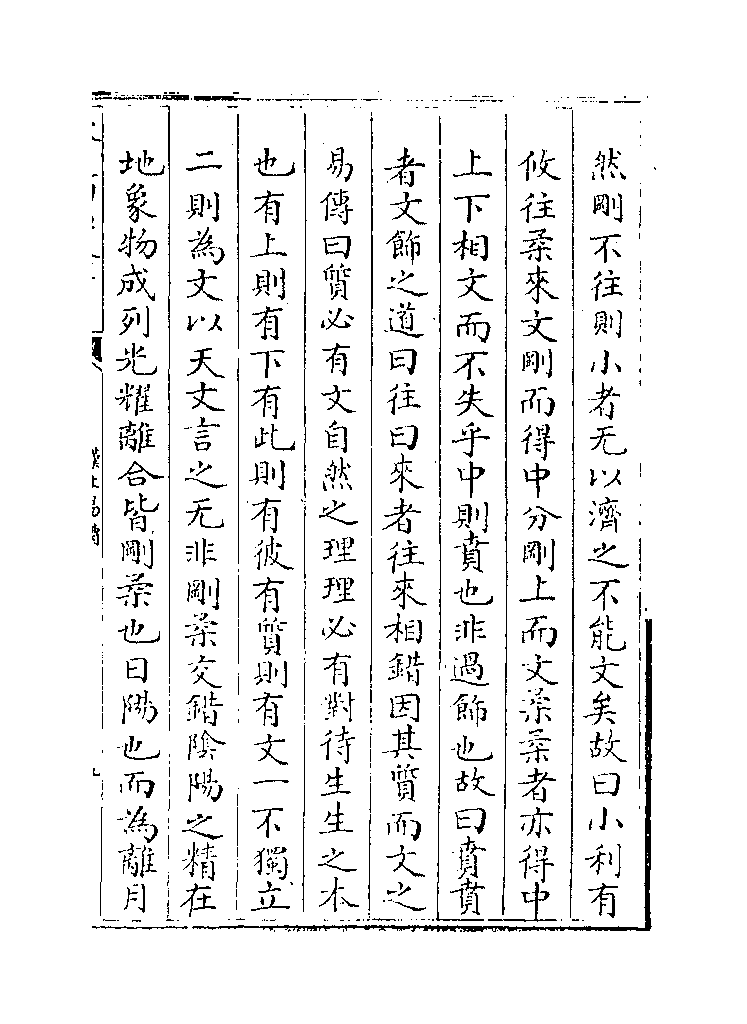 然剛不往則小者无以濟之不能文矣故曰小利有
攸往柔來文剛而得中分剛上而文柔柔者亦得中
上下相文而不失乎中則賁也非過飾也故曰賁賁
者文飾之道曰往曰來者往來相錯因其質而文之
易傳曰質必有文自然之理理必有對待生生之本
也有上則有下有此則有彼有質則有文一不獨立
二則為文以天文言之无非剛柔交錯陰陽之精在
地象物成列光耀離合皆剛柔也日陽也而為離月
漢上易傳